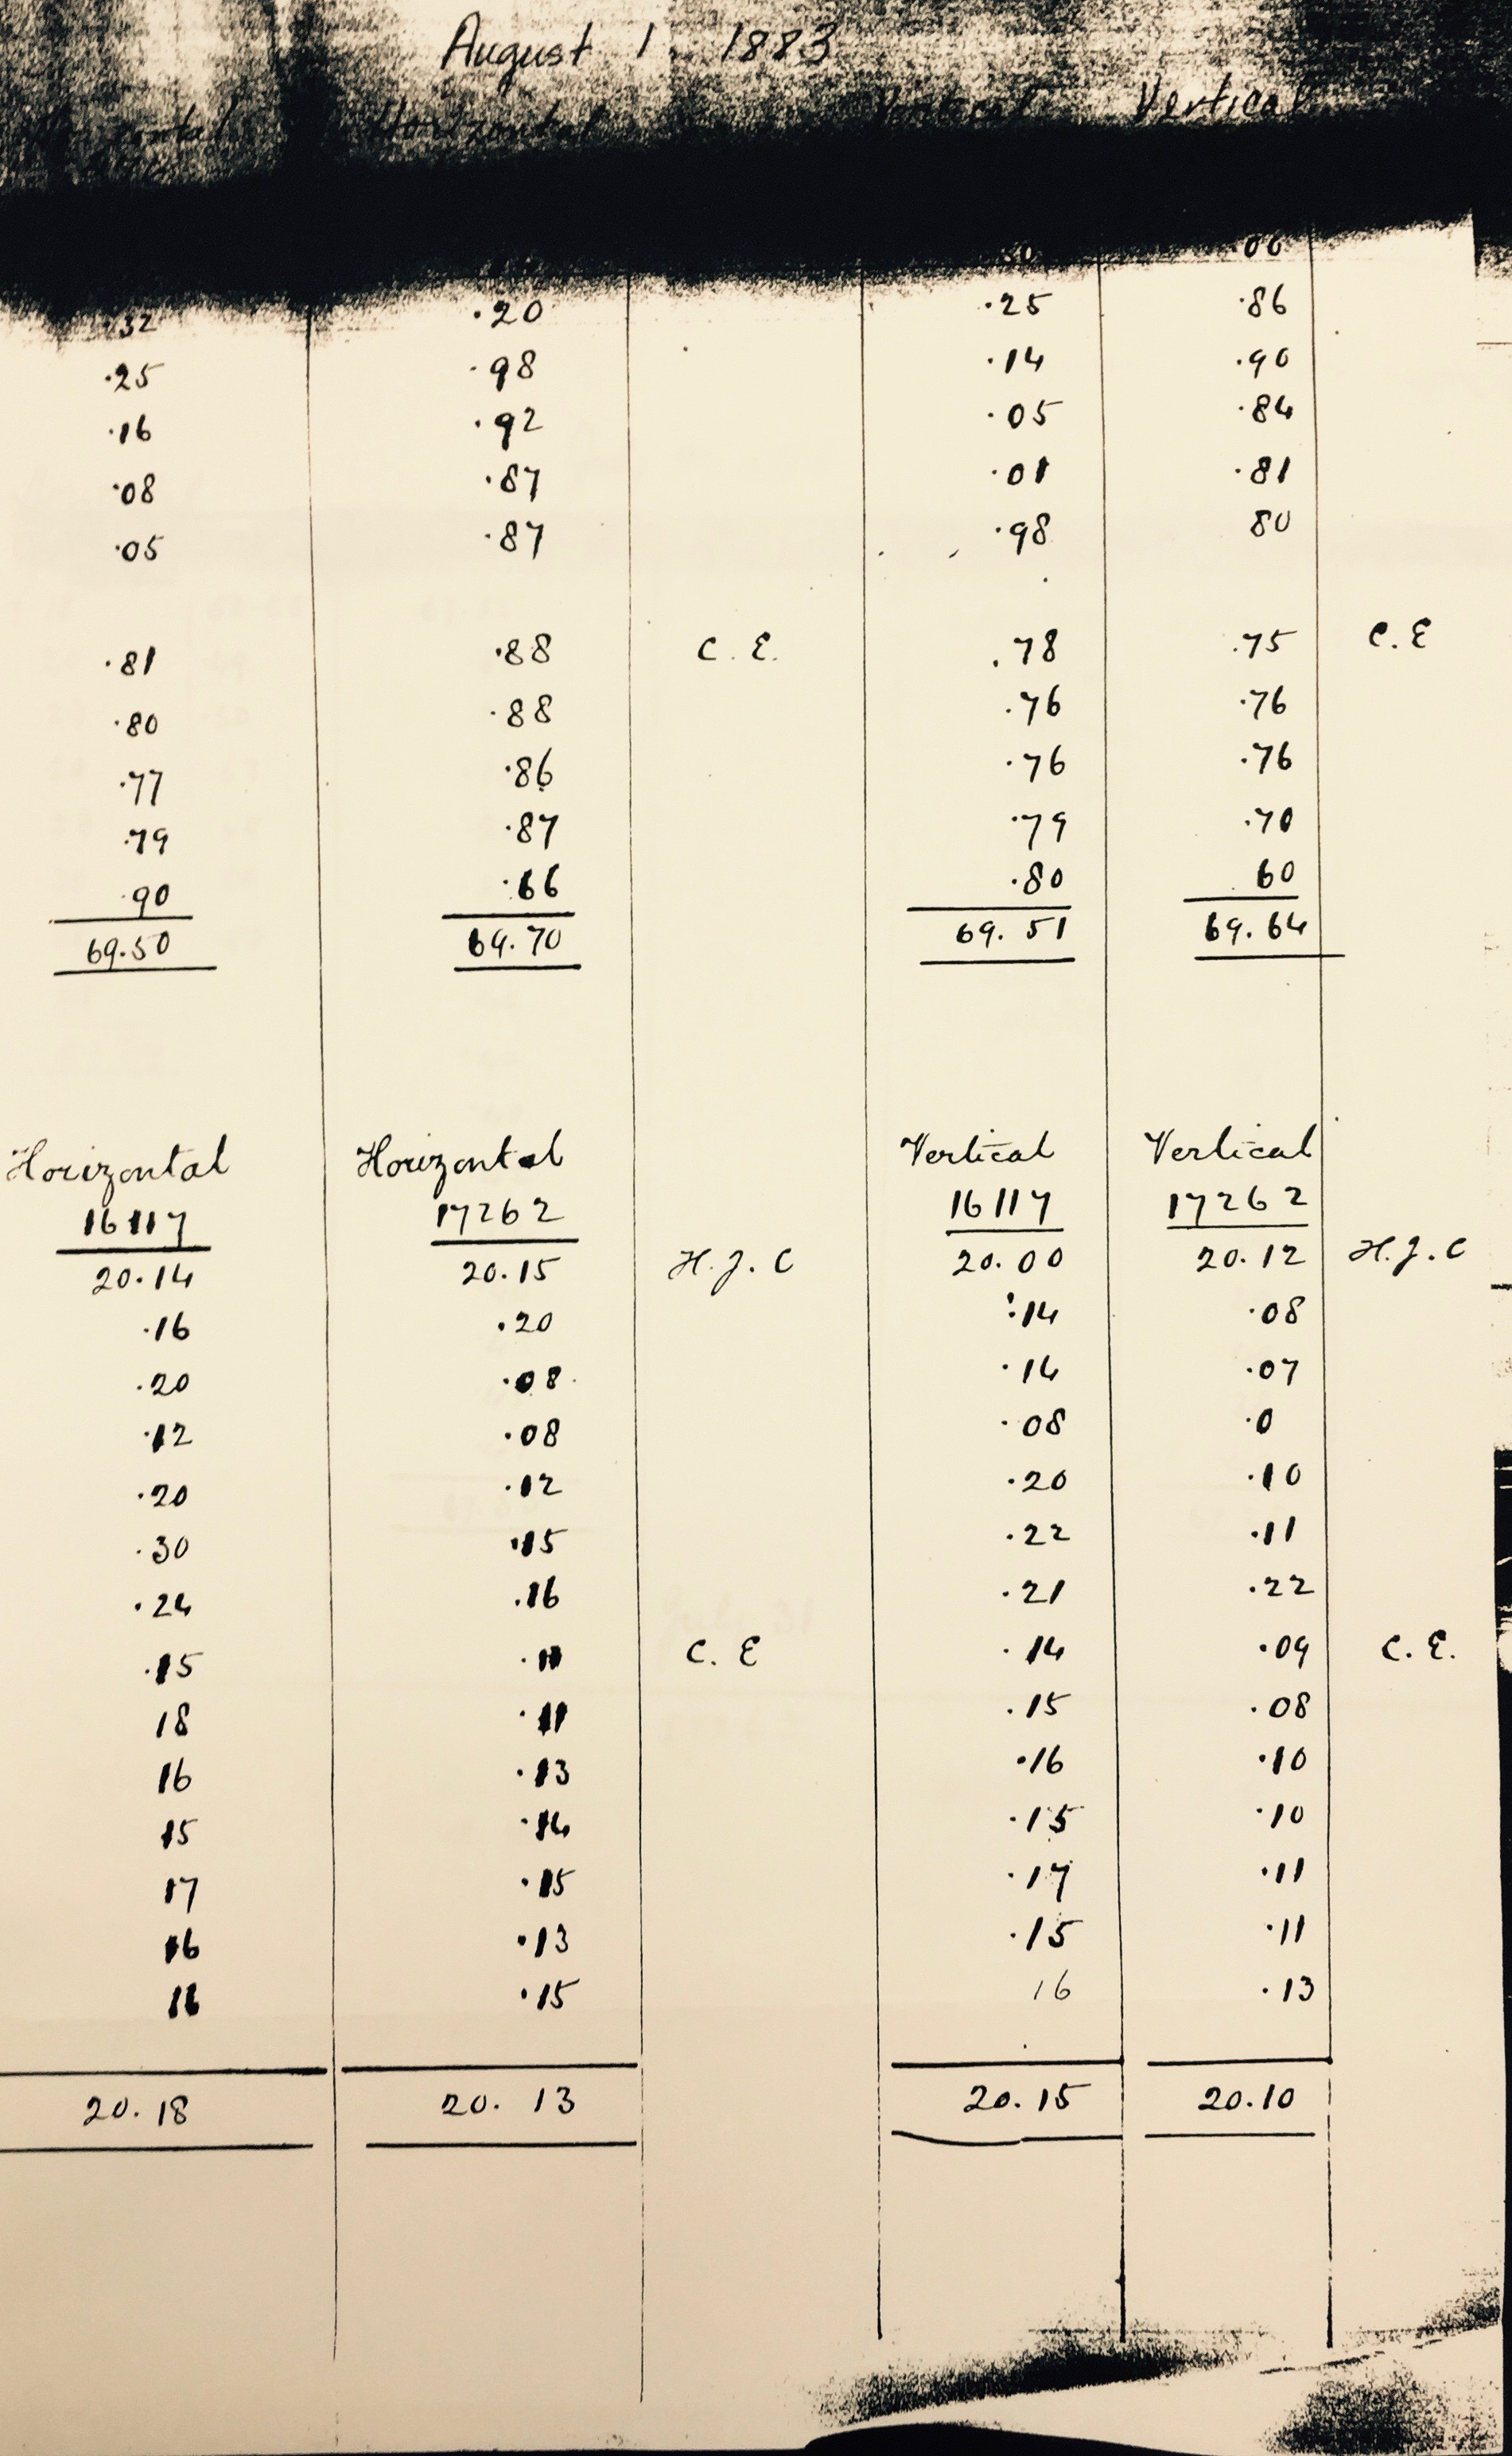 August 1 1883
Horizontal Vertical Vertical
.32 .20 .25 .86
.25 .98 .14 .90
.16 .92 .05 .84
.08 .87 .01 .81
.05 .87 .98 80
.81 .88 C. E. .78 .75 C. E
.80 .88 .76 .76
.77 .86 .76 .76
.79 .87 .79 .70
.90 .66 .80 60
69.50 69.70 69.51 69.64
Horizontal Horizontal Vertical Vertical
16117 17262 16117 17262
20.14 20.15 H. J. C 20.00 20.12 H. J. C
.16 .20 .14 .08
.20 .08 .14 .07
.12 .08 .08 .0
.20 .12 .20 .10
.30 .15 .22 .11
.24 .16 .21 .22
.15 .11 C. E .14 .09 C. E.
18 .11 .15 .08
16 .13 .16 .10
15 .14 .15 .10
17 .15 .17 .11
16 .13 .15 .11
16 .15 16 .13
20.18 20.13 20.15 20.10